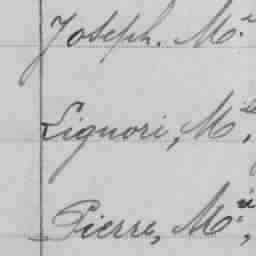 Joseph. M.
Liguori, M.
Pierre, M.